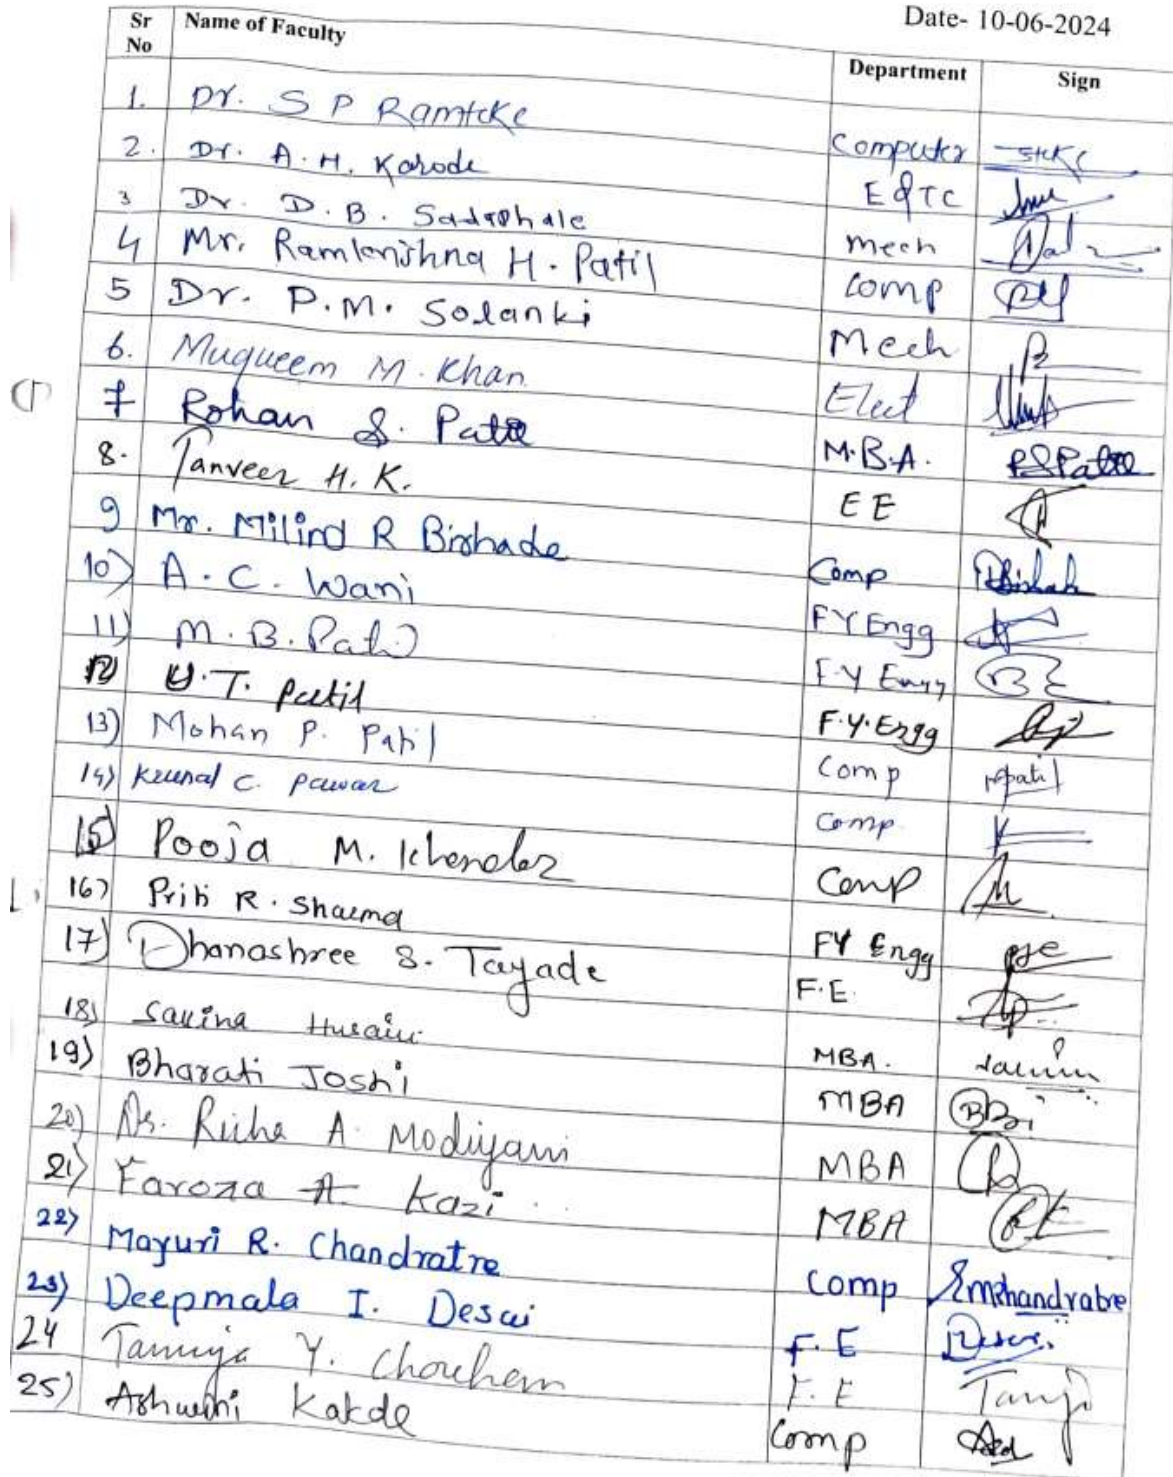 Date- 10-06-2024
Sr No Name of Faculty Department Sign
1. Dr. S P Ramteke Computer
2. Dr. A. H. Karode E&TC
3 Dr. D. B. Sadaphale Mech
4 Mr. Ramkrishna H. Patil Comp
5 Dr. P.M. Solanki Mech
6. Muqueem M. Khan Elect
7 Rohan S. Patil M.B.A. RSPatil
8. Tanveer H. K. EE
9 Mr. Milind R Bishade Comp
10) A. C. Wani FY Engg
11) M. B. Patil F.Y Engg
12) U.T. Patil F.Y. Engg
13) Mohan P. Patil Comp mpatil
14) Kunal C. Pawar Comp.
15) Pooja M. Khandez Comp
16) Priti R. Sharma FY Engg
17) Dhanashree S. Tayade F.E.
18) Sakina Husain MBA.
19) Bharati Joshi MBA
20) Richa A. Modiyani MBA
21) Faroza A Kazi MBA
22) Mayuri R. Chandratre Comp
23) Deepmala I. Desai F.E Desai
24 Tanuja Y. F.E Tanuja
25) Ashwini Kakde Comp